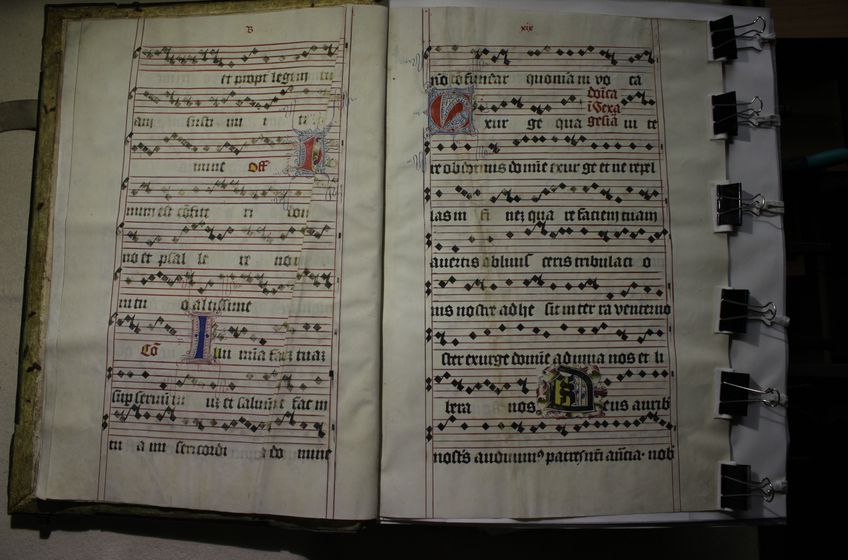 B
et propt legem tu
am susti nu i te
mine off
num est cōfite ri dom
no et psal le re noi
ni tu o altissime
Cō Illu mina faci tuaz
sup servum tu uz et salvum fac in
tu a mi sericordi a do mine
xix
no cōfundar quoniā in vo ca
dōica
ī sexa
Exur ge qua gesīa m te
re obdormis domīe exur ge et ne repel
las in fi nez qua re faciem tuam
avertis oblivis ceris tribulati o
nis nostre adhe sit in ter ra venter no
ster exurge domīe adiuva nos et li
bera nos Deus aurib
nostʳs audivimꝰ patresnr̄i anūcia· nob